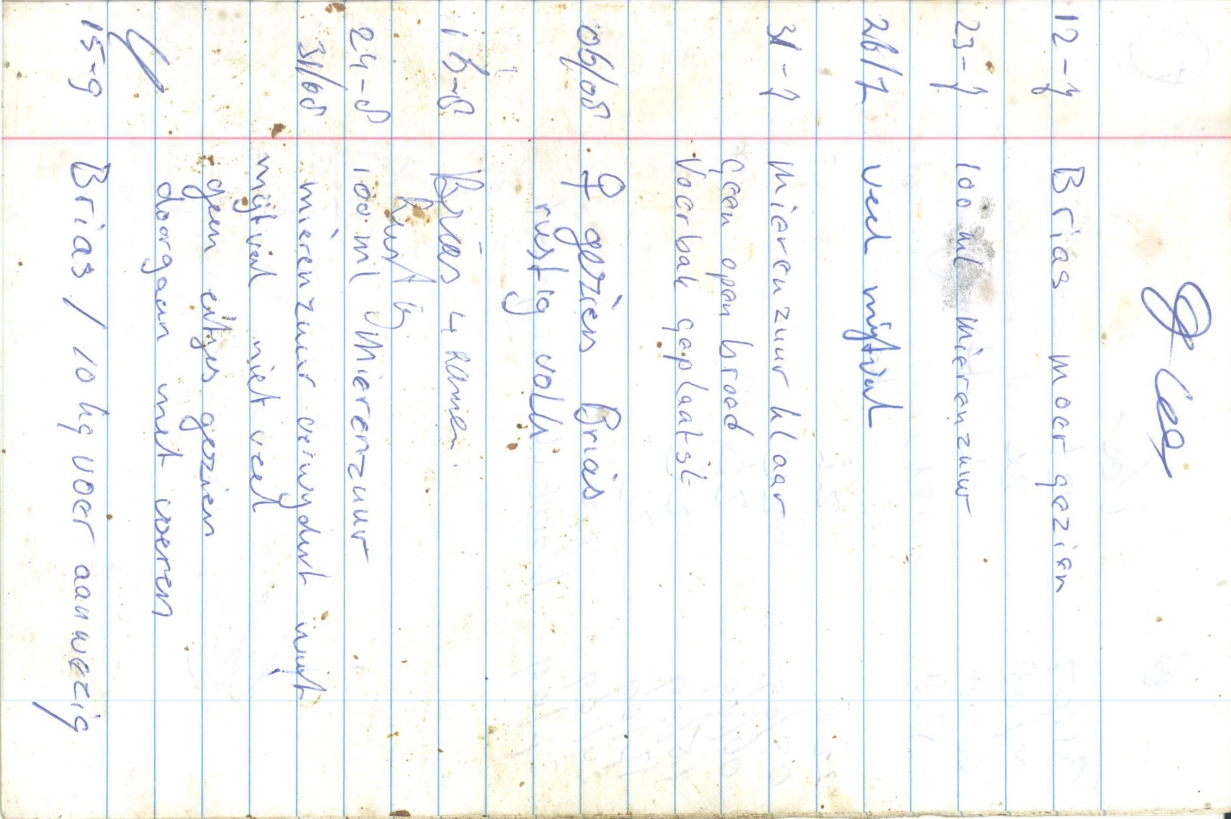 12-7 Brias moer gezien
23-7 100 ml mierenzuur
26/7 veel mijtval
31-7 mierenzuur klaar
geen open broed
Voerbak geplaatst
06/08 ♀ gezien Brias
rustig volk
16-8 Brias 4 ramen
Rustig
24-8 100 ml mierenzuur
31/08 mierenzuur verwydert
mijtval niet veel
geen eitjes gezien
doorgaan met voeren
15-9 Brias / 10 kg voer aanwezig